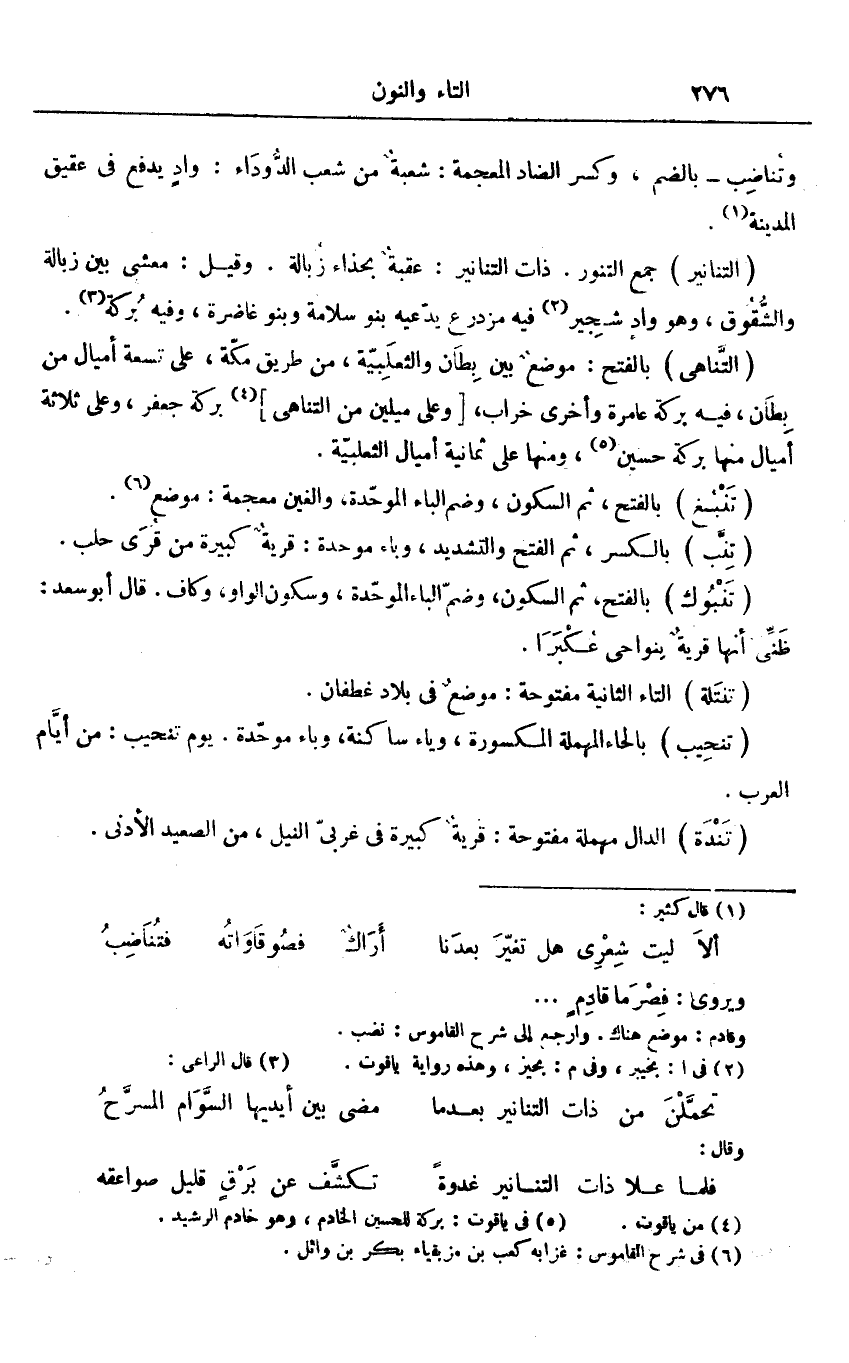 ٢٧٦
التاء والنون
وتُناضِب ــ بالضم ، وكسر الضاد المعجمة : شعبةٌ من شعب الدُّودَاء : وادٍ يدفع فى عقيق
المدينة(١) .
( التنانير ) جمع التنور . ذات التنانير : عقبةٌ بحذاء زُبالة . وقيل : معشى بين زبالة
والشُّقُوق ، وهو وادٍ شجير(٢) فيه مزدرع يدّعيه بنو سلامة وبنو غاضرة ، وفيه بُركة(٣) .
( التَّناهى ) بالفتح : موضعٌ بين بِطَان والثعلَبِيّة ، من طريق مكّة ، على تسعة أميال من
بِطَان ، فيه بركة عامرة وأخرى خراب، [ وعلى ميلين من التناهى ](٤) بركة جعفر ، وعلى ثلاثة
أميال منها بركة حسين(٥) ، ومنها على ثمانية أميال الثعلبيّة .
( تَنْبُغ ) بالفتح ، ثم السكون ، وضم الباء الموحّدة، والغين معجمة : موضع(٦) .
( تِنَّب ) بالكسر ، ثم الفتح والتشديد ، وباء موحدة : قريةٌ كبيرة من قُرَى حلب .
( تَنْبُوك ) بالفتح، ثم السكون، وضمّ الباء الموحّدة ، وسكون الواو، وكاف . قال أبو سعد :
ظَنِّى أنها قريةٌ بنواحى عُكْبَرَا .
( تنتَلة ) التاء الثانية مفتوحة : موضعٌ فى بلاد غطفان .
( تنحِيب ) بالحاء المهملة المكسورة ، وياء ساكنة، وباء موحّدة . يوم تنحيب : من أيَّام
العرب .
( تَنْدَة ) الدال مهملة مفتوحة : قريةٌ كبيرة فى غربىّ النيل ، من الصعيد الأدنى .
(١) قال كثير :
ألاَ ليت شِعْرِى هل تغيّرَ بعدَنا أَرَاكٌ فصُوقَاوَاتُه فتُنَاضِبُ
ويروى : فصْرمَا قادِمٍ ...
وقادم : موضع هناك . وارجع إلى شرح القاموس : نضب .
(٢) فى ا : بخيبر ، وفى م : بحيز ، وهذه رواية ياقوت . (٣) قال الراعى :
تحمَّلْنَ من ذات التنانير بعدما مضى بين أيديها السَّوَام المسرَّحُ
وقال :
فلما علا ذات التنانير غدوةً تكشَّف عن بَرْقٍ قليل صواعقه
(٤) من ياقوت . (٥) فى ياقوت : بركة للحسين الخادم ، وهو خادم الرشيد .
(٦) فى شرح القاموس : غزا به كعب بن مزيقياء بكر بن وائل .